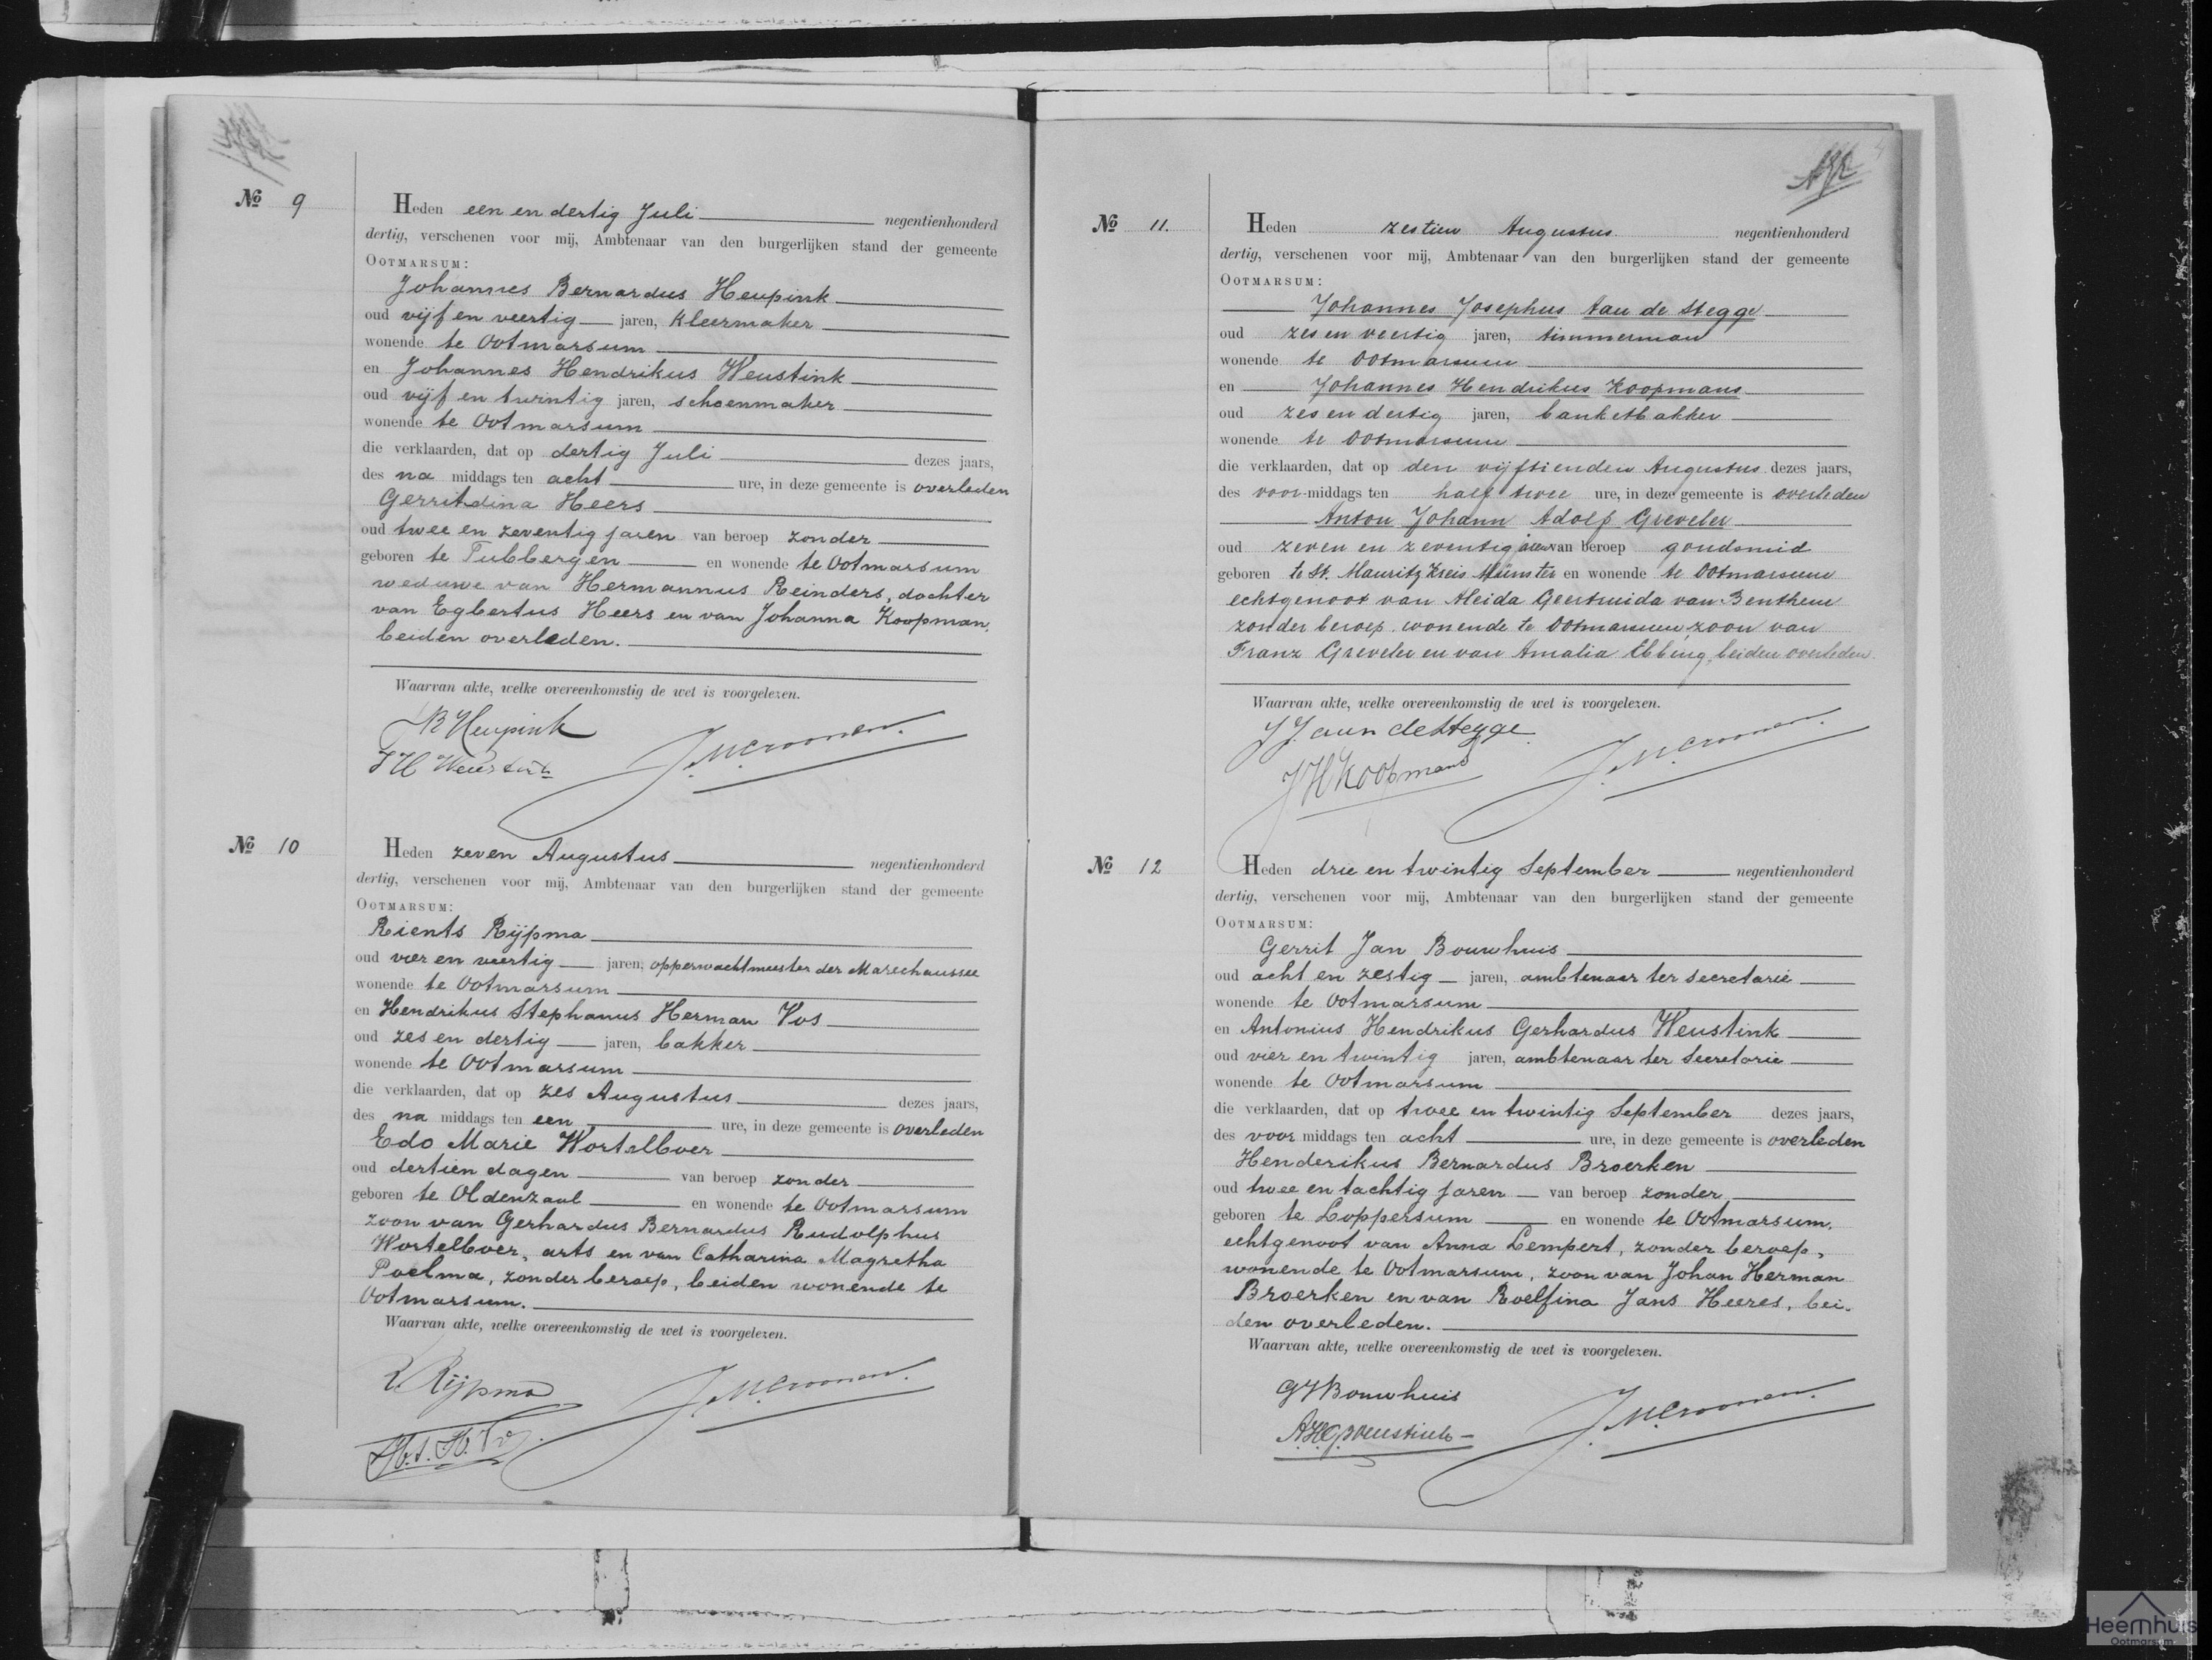 № 9
Heden een en dertig Juli negentienhonderd
dertig, verschenen voor mij, Ambtenaar van den burgerlijken stand der gemeente
OOTMARSUM:
Johannes Bernardus Heupink
oud vijf en veertig jaren, kleermaker
wonende te Ootmarsum
en Johannes Hendrikus Weustink
oud vijf en twintig jaren, schoenmaker
wonende te Ootmarsum
die verklaarden, dat op dertig Juli dezes jaars,
des na middags ten acht ure, in deze gemeente is overleden
Gerritdina Heers
oud twee en zeventig jaren van beroep zonder
geboren te Tubbergen en wonende te Ootmarsum
weduwe van Hermannus Reinders, dochter
van Egbertus Heers en van Johanna Koopman,
beiden overleden.
Waarvan akte, welke overeenkomstig de wet is voorgelezen.
JB Heupink
JH Weustink
№ 10
Heden zeven Augustus negentienhonderd
dertig, verschenen voor mij, Ambtenaar van den burgerlijken stand der gemeente
OOTMARSUM:
Rients Rijpma
oud vier en veertig jaren, opperwachtmeester der Marechaussee
wonende te Ootmarsum
en Hendrikus Stephanus Herman Vos
oud zes en dertig jaren, bakker
wonende te Ootmarsum
die verklaarden, dat op zes Augustus dezes jaars,
des na middags ten een ure, in deze gemeente is overleden
Edo Marie Wortelboer
oud dertien dagen van beroep zonder
geboren te Oldenzaal en wonende te Ootmarsum
zoon van Gerhardus Bernardus Rudolphus
Wortelboer, arts en van Catharina Magretha
Poelma, zonder beroep, beiden wonende te
Ootmarsum.
Waarvan akte, welke overeenkomstig de wet is voorgelezen.
R Rijpma
№ 11.
Heden zestien Augustus negentienhonderd
dertig, verschenen voor mij, Ambtenaar van den burgerlijken stand der gemeente
OOTMARSUM:
Johannes Josephus Aan de Stegge
oud zes en veertig jaren, timmerman
wonende te Ootmarsum
en Johannes Hendrikus Koopmans
oud zes en dertig jaren, banketbakker
wonende te Ootmarsum
die verklaarden, dat op den vijftienden Augustus dezes jaars,
des voor-middags ten half twee ure, in deze gemeente is overleden
Anton Johann Adolf Greveler
oud zeven en zeventig jaren van beroep goudsmid
geboren te St. Mauritz Kreis Münster en wonende te Ootmarsum
echtgenoot van Aleida Geertruida van Benthem
zonder beroep, wonende te Ootmarsum, zoon van
Franz Greveler en van Amalia Ebbing, beiden overleden.
Waarvan akte, welke overeenkomstig de wet is voorgelezen.
JJ aan de Stegge
JH Koopmans
№ 12
Heden drie en twintig September negentienhonderd
dertig, verschenen voor mij, Ambtenaar van den burgerlijken stand der gemeente
OOTMARSUM:
Gerrit Jan Bouwhuis
oud acht en zestig jaren, ambtenaar ter secretarie
wonende te Ootmarsum
en Antonius Hendrikus Gerhardus Weustink
oud vier en twintig jaren, ambtenaar ter secretarie
wonende te Ootmarsum
die verklaarden, dat op twee en twintig September dezes jaars,
des voor middags ten acht ure, in deze gemeente is overleden
Henderikus Bernardus Broerken
oud twee en tachtig jaren van beroep zonder
geboren te Loppersum en wonende te Ootmarsum,
echtgenoot van Anna Lempert, zonder beroep,
wonende te Ootmarsum, zoon van Johan Herman
Broerken en van Roelfina Jans Heeres, bei-
den overleden.
Waarvan akte, welke overeenkomstig de wet is voorgelezen.
GJ Bouwhuis
AHG Weustink
Heemhuis
Ootmarsum